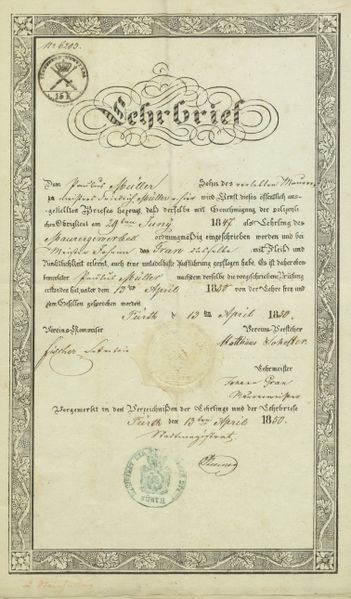 No 6203.
15 K
Lehrbrief
Dem Paulus Müller Sohn des verlebten Maurer-
meisters Friedrich Müller wird Kraft dieses öffentlich aus-
gestellten Briefes bezeugt, daß derselbe mit Genehmigung der polizeili-
chen Obrigkeit am 29ten Juny 1847 als Lehrling des
Maurergewerbes ordnungsmäßig eingeschrieben worden und bei
Meister Johann Gran dasselbe mit Fleiß und
Pünktlichkeit erlernt, auch eine untadelhafte Aufführung gepflogen habe. Es ist daher oben-
bemerkter Paulus Müller nachdem derselbe die vorgeschriebene Prüfung
erstanden hat, unter dem 13ten April 1850 von der Lehre frei und
zum Gesellen gesprochen worden.
Fürth 13ten April 1850.
Vereins-Kommissär Vereins-Vorsteher
Fischer Matthäus
Lehrmeister
Johann Gran
Maurermeister
Vorgemerkt in den Verzeichnißen der Lehrlinge und der Lehrbriefe
Fürth den 13ten April 1850.
Stadtmagistrat.
FÜRTH